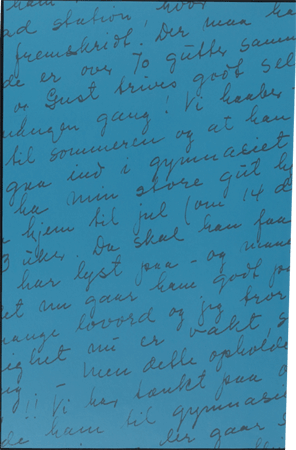 ad station, hvor
fremskridt. Der maa ha
de er over 70 gutter samm
og Gust trives godt sel
gang! Vi haaber
til sommeren og at han
gaa ind i gymnasiet
ha min store gut hj
hjem til jul (om 14 d
3 uker. Da skal han faa
har lyst paa - og
et nu gaar ham godt pa
mange lovord og jeg tror
ighet nu er vakt s
ig - Men dette ophold
!! Vi har tænkt paa a
de ham til gymnasi
der gaar s